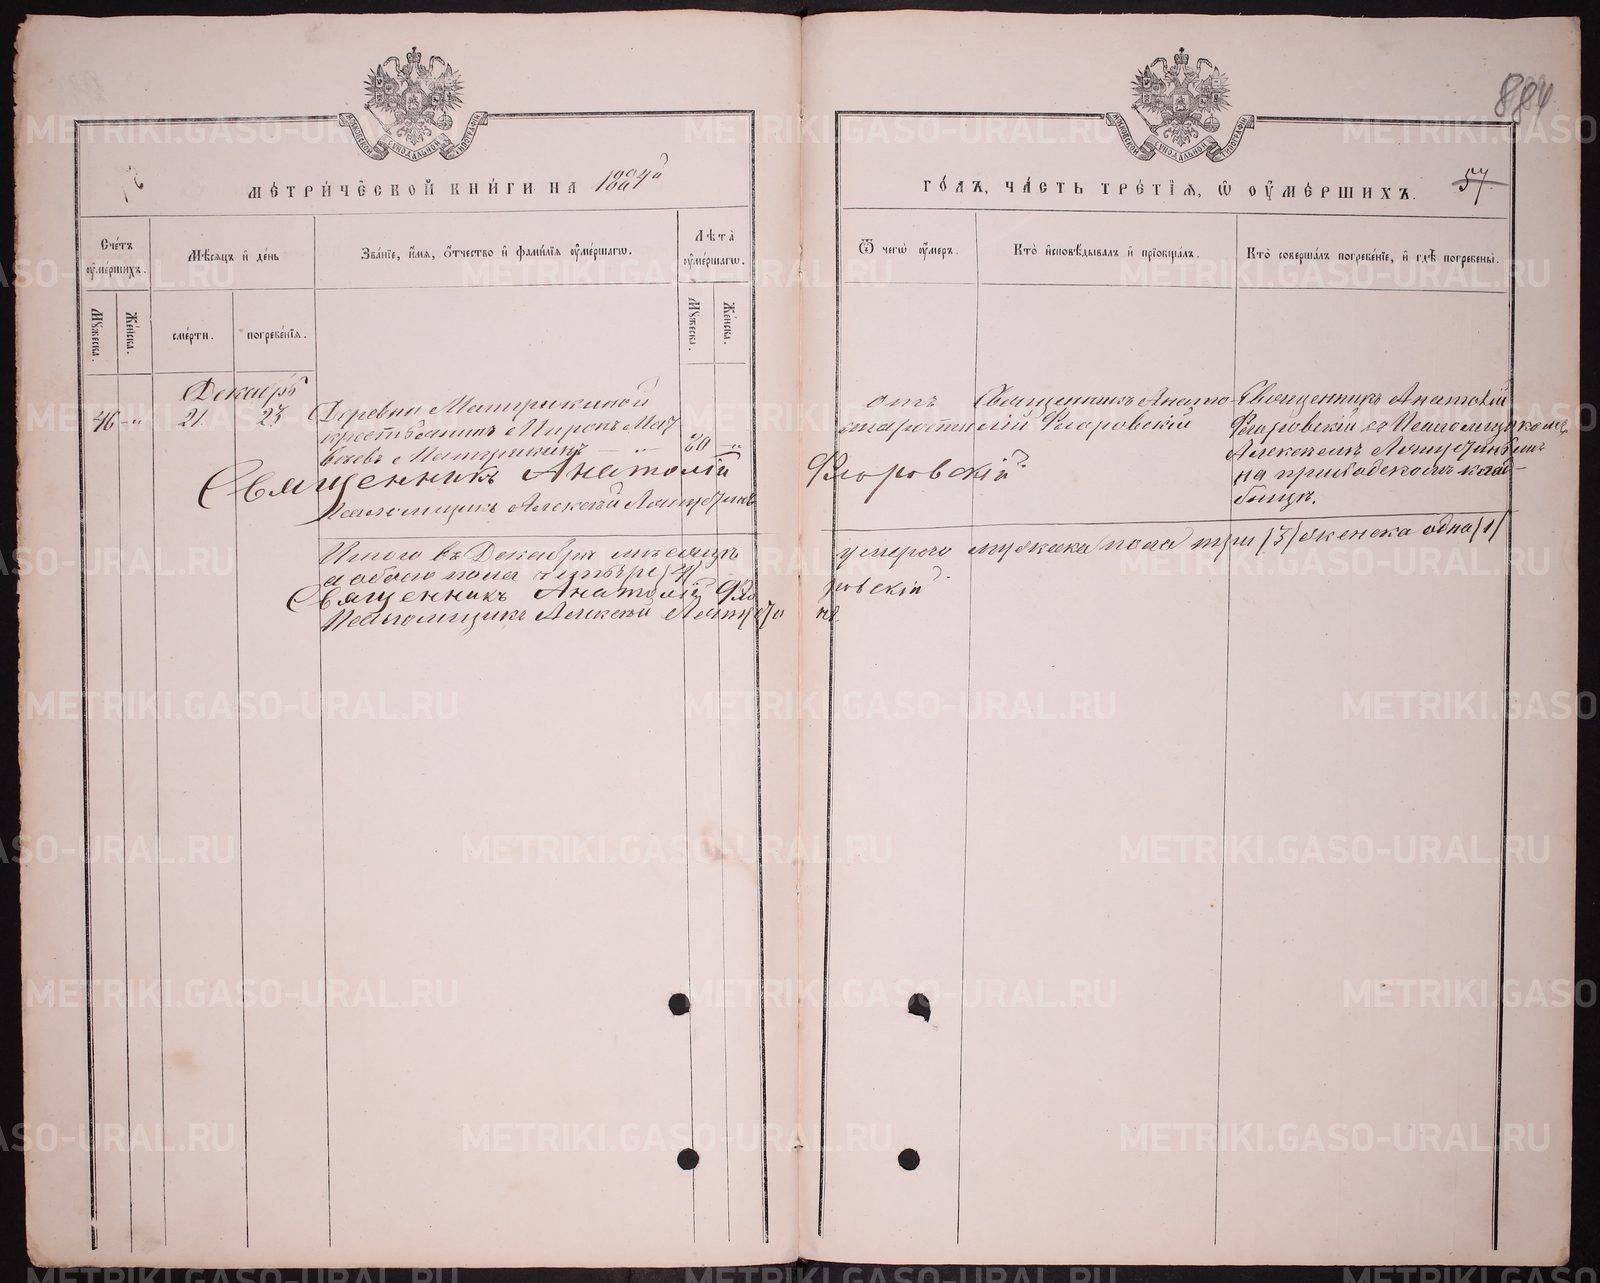 884
МОСКОВСКОЙ СѴНОДАЛЬНОЙ ТИПОГРАФІИ
МОСКОВСКОЙ СѴНОДАЛЬНОЙ ТИПОГРАФІИ
МЕ́ТРИ́ЧЕСКОЙ КНИ́ГИ НА 1884й
ГО́ДЪ, ЧА́СТЬ ТРЕ́ТІѦ, Ѿ ОУ҆МЕ́РШИХЪ. 57
Сче́тъ оу҆ме́ршихъ.
Мѣ́сѧцъ и҆ де́нь
Зва́нїе, и҆́мѧ, ѻ҆́тчество и҆ фами́лїѧ оу҆ме́ршагѡ.
Лѣ́та оу҆ме́ршагѡ.
Ѿ чегѡ̀ оу҆́меръ.
Кто̀ и҆сповѣ́дывалъ и҆ прїобща́лъ.
Кто̀ соверша́лъ погребе́нїе, и҆ гдѣ̀ погребены̀.
Мꙋ́жеска.
Же́нска.
сме́рти.
погребе́нїѧ.
Мꙋ́жеска.
Же́нска.
Декабрь
46 -"- 21. 23. Деревни Матушкиной
крестьянинъ Миронъ Мат
веевъ Матушкинъ — " — 80 "
отъ
старости
Священникъ Анато
лій Флоровскій
Священникъ Анатолій
Флоровскій съ Псаломщикомъ
Алексѣемъ
на приходскомъ клад-
бищѣ.
Священникъ Анатолій Флоровскій
Псаломщикъ Алексѣй
Итого въ Декабрѣ мѣсяцѣ умерло мужска пола три /3/ женска одна /1/
а обоего пола четыре /4/
Священникъ Анатолій Флоровскій
Псаломщикъ Алексѣй
METRIKI.GASO-URAL.RU